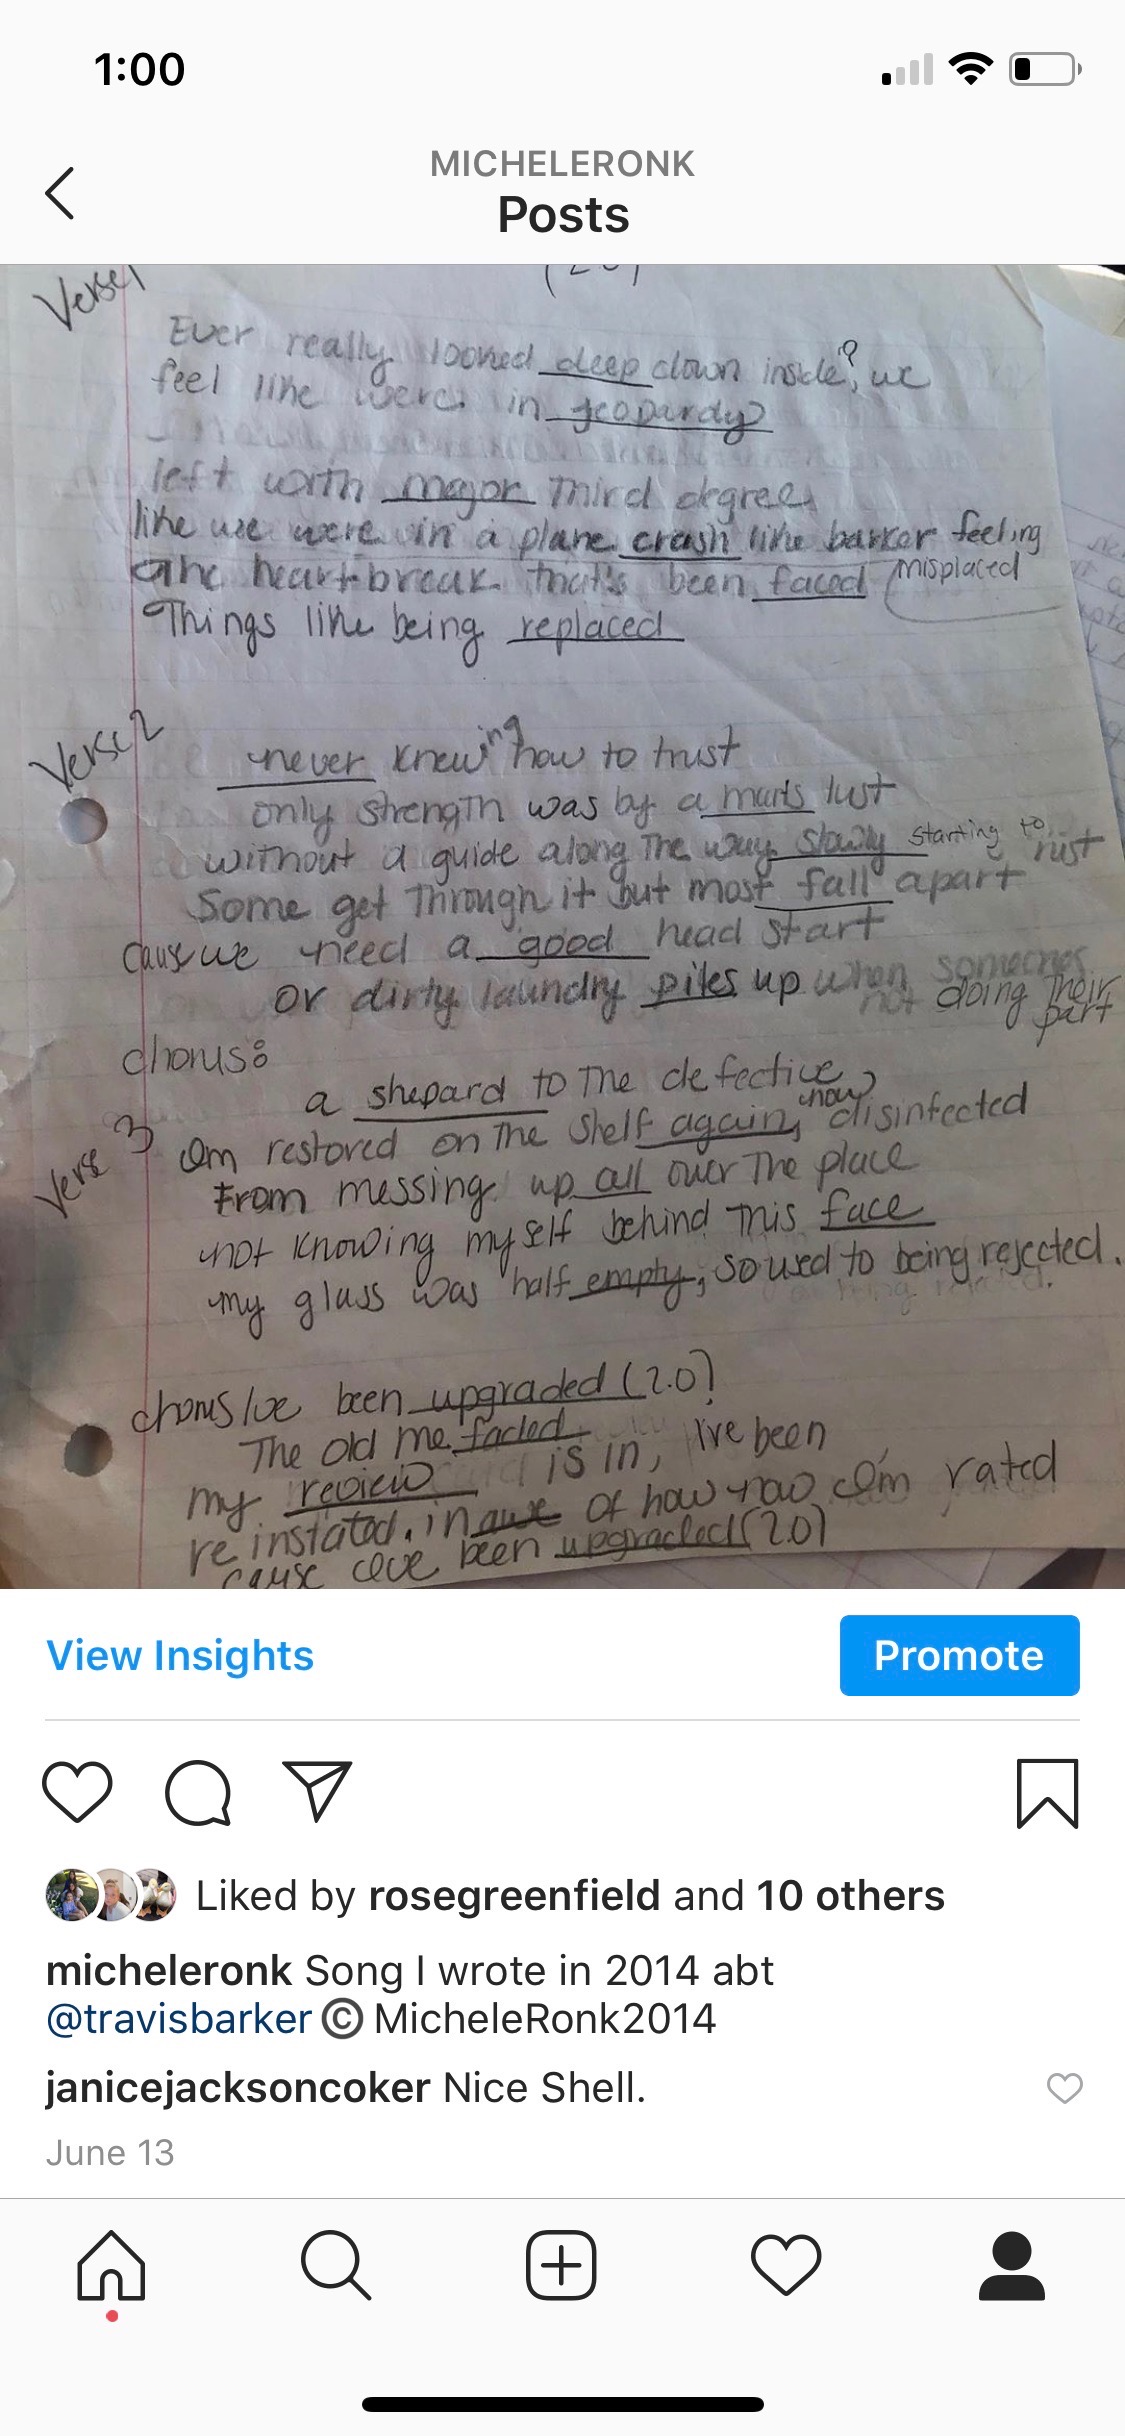 1:00
MICHELERONK
Posts
Verse 1
Ever really looked deep down inside? we
feel like were in jeopardy?
left with major Third degree
like we were in a plane crash like barker feeling
The heartbreak that's been faced misplaced
Things like being replaced
Verse 2
never knewing how to trust
only strength was by a mans lust
without a guide along The way slowly starting to rust
Some get Through it but most fall apart
cause we need a good head start
or dirty laundry piles up when someones
not doing Their
part
chorus:
a shepard to The defective
Verse 3
Im restored on The Shelf again, now disinfected
From messing up all over The place
not knowing myself behind This face
my glass was half empty, so used to being rejected.
chorus Ive been upgraded (2.0)
The old me faded
my review is in, I've been
reinstated, in awe of how now Im rated
cause Ive been upgraded (2.0)
View Insights
Promote
Liked by rosegreenfield and 10 others
micheleronk Song I wrote in 2014 abt
@travisbarker © MicheleRonk2014
janicejacksoncoker Nice Shell.
June 13